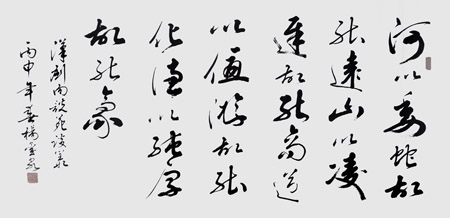 河以委蛇故
能遠山以凌
遲故能高道
以優游故能
化德以純厚
故能豪
漢劉向說苑談叢
丙申年春楊